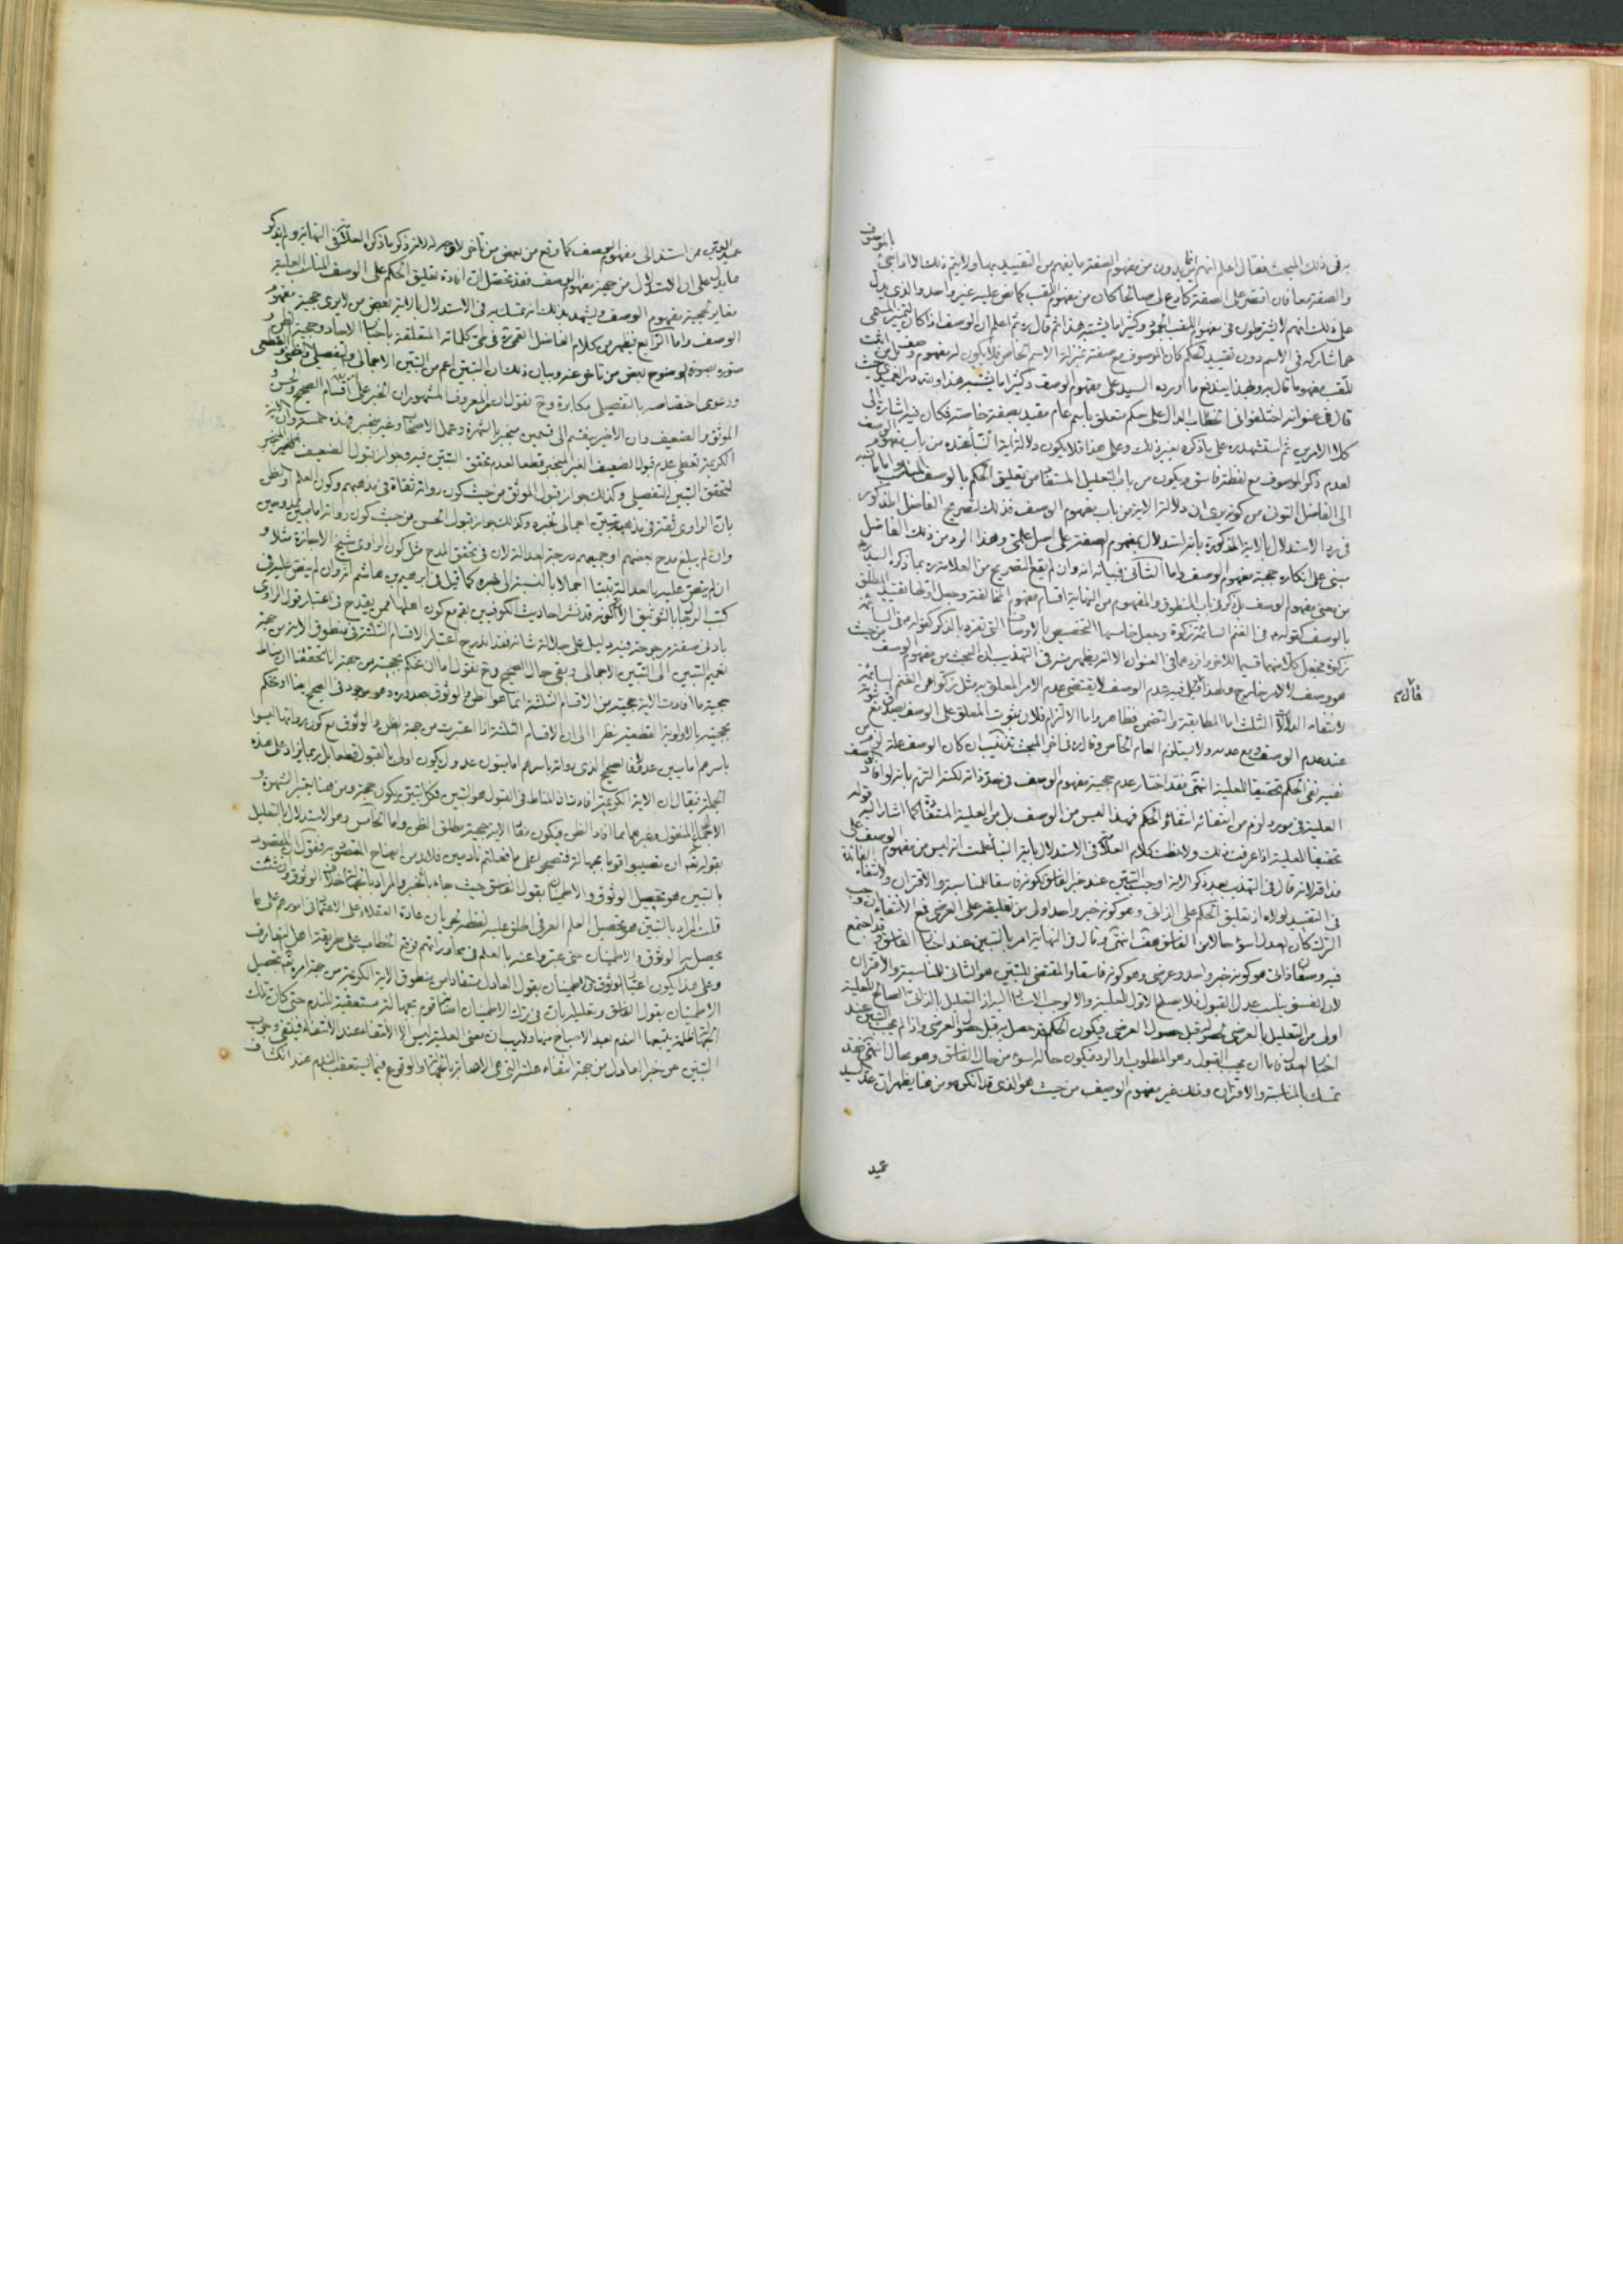 بالموصوف
به فى ذلك المبحث فقال اعلم انهم يريدون من مفهوم الصفة ما يفهم من التقييد بها ولا يتم ذلك الا اذا جئ
والصفة معا فان اقتصر على الصفة كادع لى صالحا كان من مفهوم اللقب كما نص عليه غير واحد والذى يدل
على ذلك انهم لا يشترطون فى مفهوم اللقب الجمود وكثيرا ما يشتبه هذا ثم قال ره ثم اعلم ان الوصف اذا كان لتمييز المسمى
عما شاركه فى الاسم دون تقييد الحكم كان الموصوف مع صفته بمنزلة الاسم الخاص فلا يكون له مفهوم وصف
للقب مفهوما قال به وبهذا يندفع ما اورده السيد على مفهوم الوصف وكثيرا ما يشتبه هذا
قال فى عنوانه اختلفوا فى الخطاب الدال على حكم متعلق باسم عام مقيد بصفة خاصة فكان فيه اشارة الى
كلام الامدى ثم استشهد ره على ما ذكره بغير ذلك وعلى هذا فلا يكون دلالة اية النبأ عنده من باب مفهوم الوصف
لعدم ذكر الموصوف مع لفظة فاسق ويكون من باب التعليل المستفاد من تعليق الحكم بالوصف المناسب
الى الفاضل التونى من كونه يرى ان دلالة الاية من باب مفهوم الوصف فذلك لتصريح الفاضل المذكور
فى رد الاستدلال بالاية المذكورة بانه استدلال بمفهوم الصفة على اصل علمى وهذا الرد من ذلك الفاضل
مبنى على انكاره حجية مفهوم الوصف واما الثانى فبيانه انه وان لم يقع التصريح من العلامة ره بما ذكره السيد ره
من معنى مفهوم الوصف بل ذكر فى باب المنطوق والمفهوم من النهاية اقسام مفهوم المخالفة وجعل اولها تقييد المطلق
بالوصف كقوله فى الغنم السائمة زكوة وجعل خامسها التخصيص بالاوصاف التى تفرد بالذكر كقوله فى السائمة
زكوة فجعل كلا منهما قسيما للاخر وافردهما فى العنوان الا انه يظهر منه فى التهذيب ان البحث من مفهوم الوصف من حيث
هو وصف لا لامر خارج ولهذا قيل فيه عدم الوصف لا يقتضى عدم الامر المعلق به مثل زكوا عن الغنم السائمة
لانتفاء الدلالات الثلث اما المطابقة والتضمن فظاهر واما الالتزام فلان ثبوت المعلق على الوصف يصدق مع ثبوته
عند عدم الوصف ومع عدمه ولا يستلزم العام الخاص وقال ره فى اخر المبحث تذنيب ان كان الوصف علة لزم من
نفيه نفى الحكم تحقيقا للعلية انتهى فقد اختار عدم حجية مفهوم الوصف فى حد ذاته لكنه التزم بانه لو افاد الوصف
العلية فى مورد لزم من انتفائه انتفاء الحكم فهذا ليس من الوصف بل من العلية المتفقة كما اشار اليه قوله
تحقيقا للعلية اذا عرفت ذلك ولاحظت كلام العلامة فى الاستدلال باية النبأ علمت انه ليس من مفهوم الوصف على
مذاقه لانه قال فى التهذيب بعد ذكر الاية اوجب التبين عند خبر الفاسق لكونه فاسقا للمناسبة والاقتران ولانتفاء الفائدة
فى التقييد لولاه اذ تعليق الحكم على الذاتى وهو كونه خبر واحد اولى من تعليقه على العرضى فمع الانتفاء ان وجب
الرد كان العدل اسوء حالا من الفاسق هف انتهى وقال فى النهاية امر بالتبين عند اخبار الفاسق وقد اجتمع
فيه وصفان ذاتى هو كونه خبر واحد وعرضى وهو كونه فاسقا والمقتضى للتبين هو الثانى للمناسبة والاقتران
لان الفسق يناسب عدم القبول فلا يصلح الاول للعلية والا لوجب الاستناد اليه اذ التعليل بالذاتى الصالح للعلية
اولى من التعليل بالعرضى لحصوله قبل حصول العرضى فيكون الحكم قد حصل به قبل حصول العرضى واذا لم يجب التبين عند
اخبار العدل فاما ان يجب القبول وهو المطلوب او الرد فيكون حاله اسوء من حال الفاسق وهو محال انتهى فقد
تمسك بالمناسبة والاقتران وذلك غير مفهوم الوصف من حيث هو الذى قد انكره ومن هنا يظهر ان عد السيد
عميد
قال ره
عميد الدين ممن استند الى مفهوم الوصف كما وقع من بعض من تاخر لا وجه له لانه ذكر ما ذكره العلامة فى النهاية ولم يذكر
ما يدل على ان الاستدلال من جهة مفهوم الوصف فقد تحصل ان افادة تعليق الحكم على الوصف المناسب العلية
مغاير لحجية مفهوم الوصف ويشهد بذلك انه تمسك به فى الاستدلال بالاية بعض من لا يرى حجية مفهوم
الوصف واما الرابع فيظهر من كلام الفاضل القمى ره فى طى كلماته المتعلقة باخبار الاحاد وحجية الظن و
صوره بصورة الوضوح بعض من تاخر عنه وبيان ذلك ان التبين اعم من التبين الاجمالى والتفصيلى والظنى والقطعى
ودعوى اختصاصه بالتفصيلى مكابرة وح نقول ان المعروف المشهور ان الخبر على اقسام الصحيح والحسن و
الموثق والضعيف وان الاخير ينقسم الى قسمين منجبر بالشهرة وعمل الاصحاب وغير منجبر فهذه خمسة وان الاية
الكريمة تعطى عدم قبول الضعيف الغير المنجبر قطعا لعدم تحقق التبين فيه وجواز قبول الضعيف المنجبر
لتحقق التبين التفصيلى وكذلك جواز قبول الموثق من حيث كون رواته ثقاة فى مذهبهم وكون العلم او الظن
بان الراوى ثقة فى مذهبه تبين اجمالى لخبره وكذلك جواز قبول الحسن من حيث كون رواته امامين ممدوحين
وان لم يبلغ مدح بعضهم او جميعهم درجة العدالة لان فى تحقق المدح مثل كون الراوى شيخ الاجازة مثلا و
ان لم ينص عليه بالعدالة تبينا اجماليا بالنسبة الى خبره كما قيل فى ابرهيم بن هاشم انه وان لم ينص عليه فى
كتب الرجال بالتوثيق الا ان كونه قد نشر احاديث الكوفيين بقم مع كون اهلها ممن يقدح فى اعتبار قول الراوى
بادنى صفة مرجوحة فيه دليل على جلالة شانه فقد اندرج اعتبار الاقسام الثلثة فى منطوق الاية من جهة
تعميم التبين الى التبين الاجمالى وبقى حال الصحيح وح نقول اما ان نحكم بحجيته من جهة انا تحققنا ان مناط
حجية ما افادت الاية حجيته من الاقسام الثلثة انما هو الظن والوثوق بصدوره وهو موجود فى الصحيح ايضا او نحكم
بحجيته بالاولوية القطعية نظرا الى ان الاقسام الثلثة اذا اعتبرت من جهة الظن والوثوق مع كون رواتها ليسوا
باسرهم امامين عدولا فالصحيح الذى رواته باسرهم اماميون عدول يكون اولى بالقبول قطعا بل ربما يزاد على هذه
الجملة فيقال ان الاية الكريمة افادت ان المناط فى القبول هو التبين فكل تبين يكون حجة ومن هنا يعتبر الشهرة و
الاجماع المنقول وغيرهما مما افاد الظن فيكون مفاد الاية حجية مطلق الظن واما الخامس وهو الاستدلال بالتعليل
بقوله تعالى ان تصيبوا قوما بجهالة فتصبحوا على ما فعلتم نادمين فلا بد من ايضاح المقصود به فنقول ان المقصود
بالتبين هو تحصيل الوثوق والاطمينان بقول الفاسق حيث جاء بالخبر والمراد بالجهالة خلاف الوثوق وان شئت
قلت المراد بالتبين هو تحصيل العلم العرفى اطلق عليه لفظه لجريان عادة العقلاء على الاعتماد فى امورهم على ما
يحصل به الوثوق والاطمينان حتى عبروا عنه بالعلم فى محاوراتهم فوقع الخطاب على طريقة اهل التعارف
وعلى هذا يكون اعتبار الوثوق والاطمينان بقول العادل مستفادا من منطوق الاية الكريمة من جهة امره تعالى بتحصيل
الاطمينان بقول الفاسق وتعليله بان فى ترك الاطمينان اصابة قوم بجهالة مستعقبة للندم حتى كان تلك
الجهالة ظلمة يتبعها الندم بعد الاصباح منها ولا ريب ان معنى العلية ليس الا الانتفاء عند الانتفاء فينتفى وجوب
التبين عن خبر العادل من جهة انتفاء علته التى هى الاصابة بالجهالة والوقوع فيما يستعقب الندم عند انكشاف